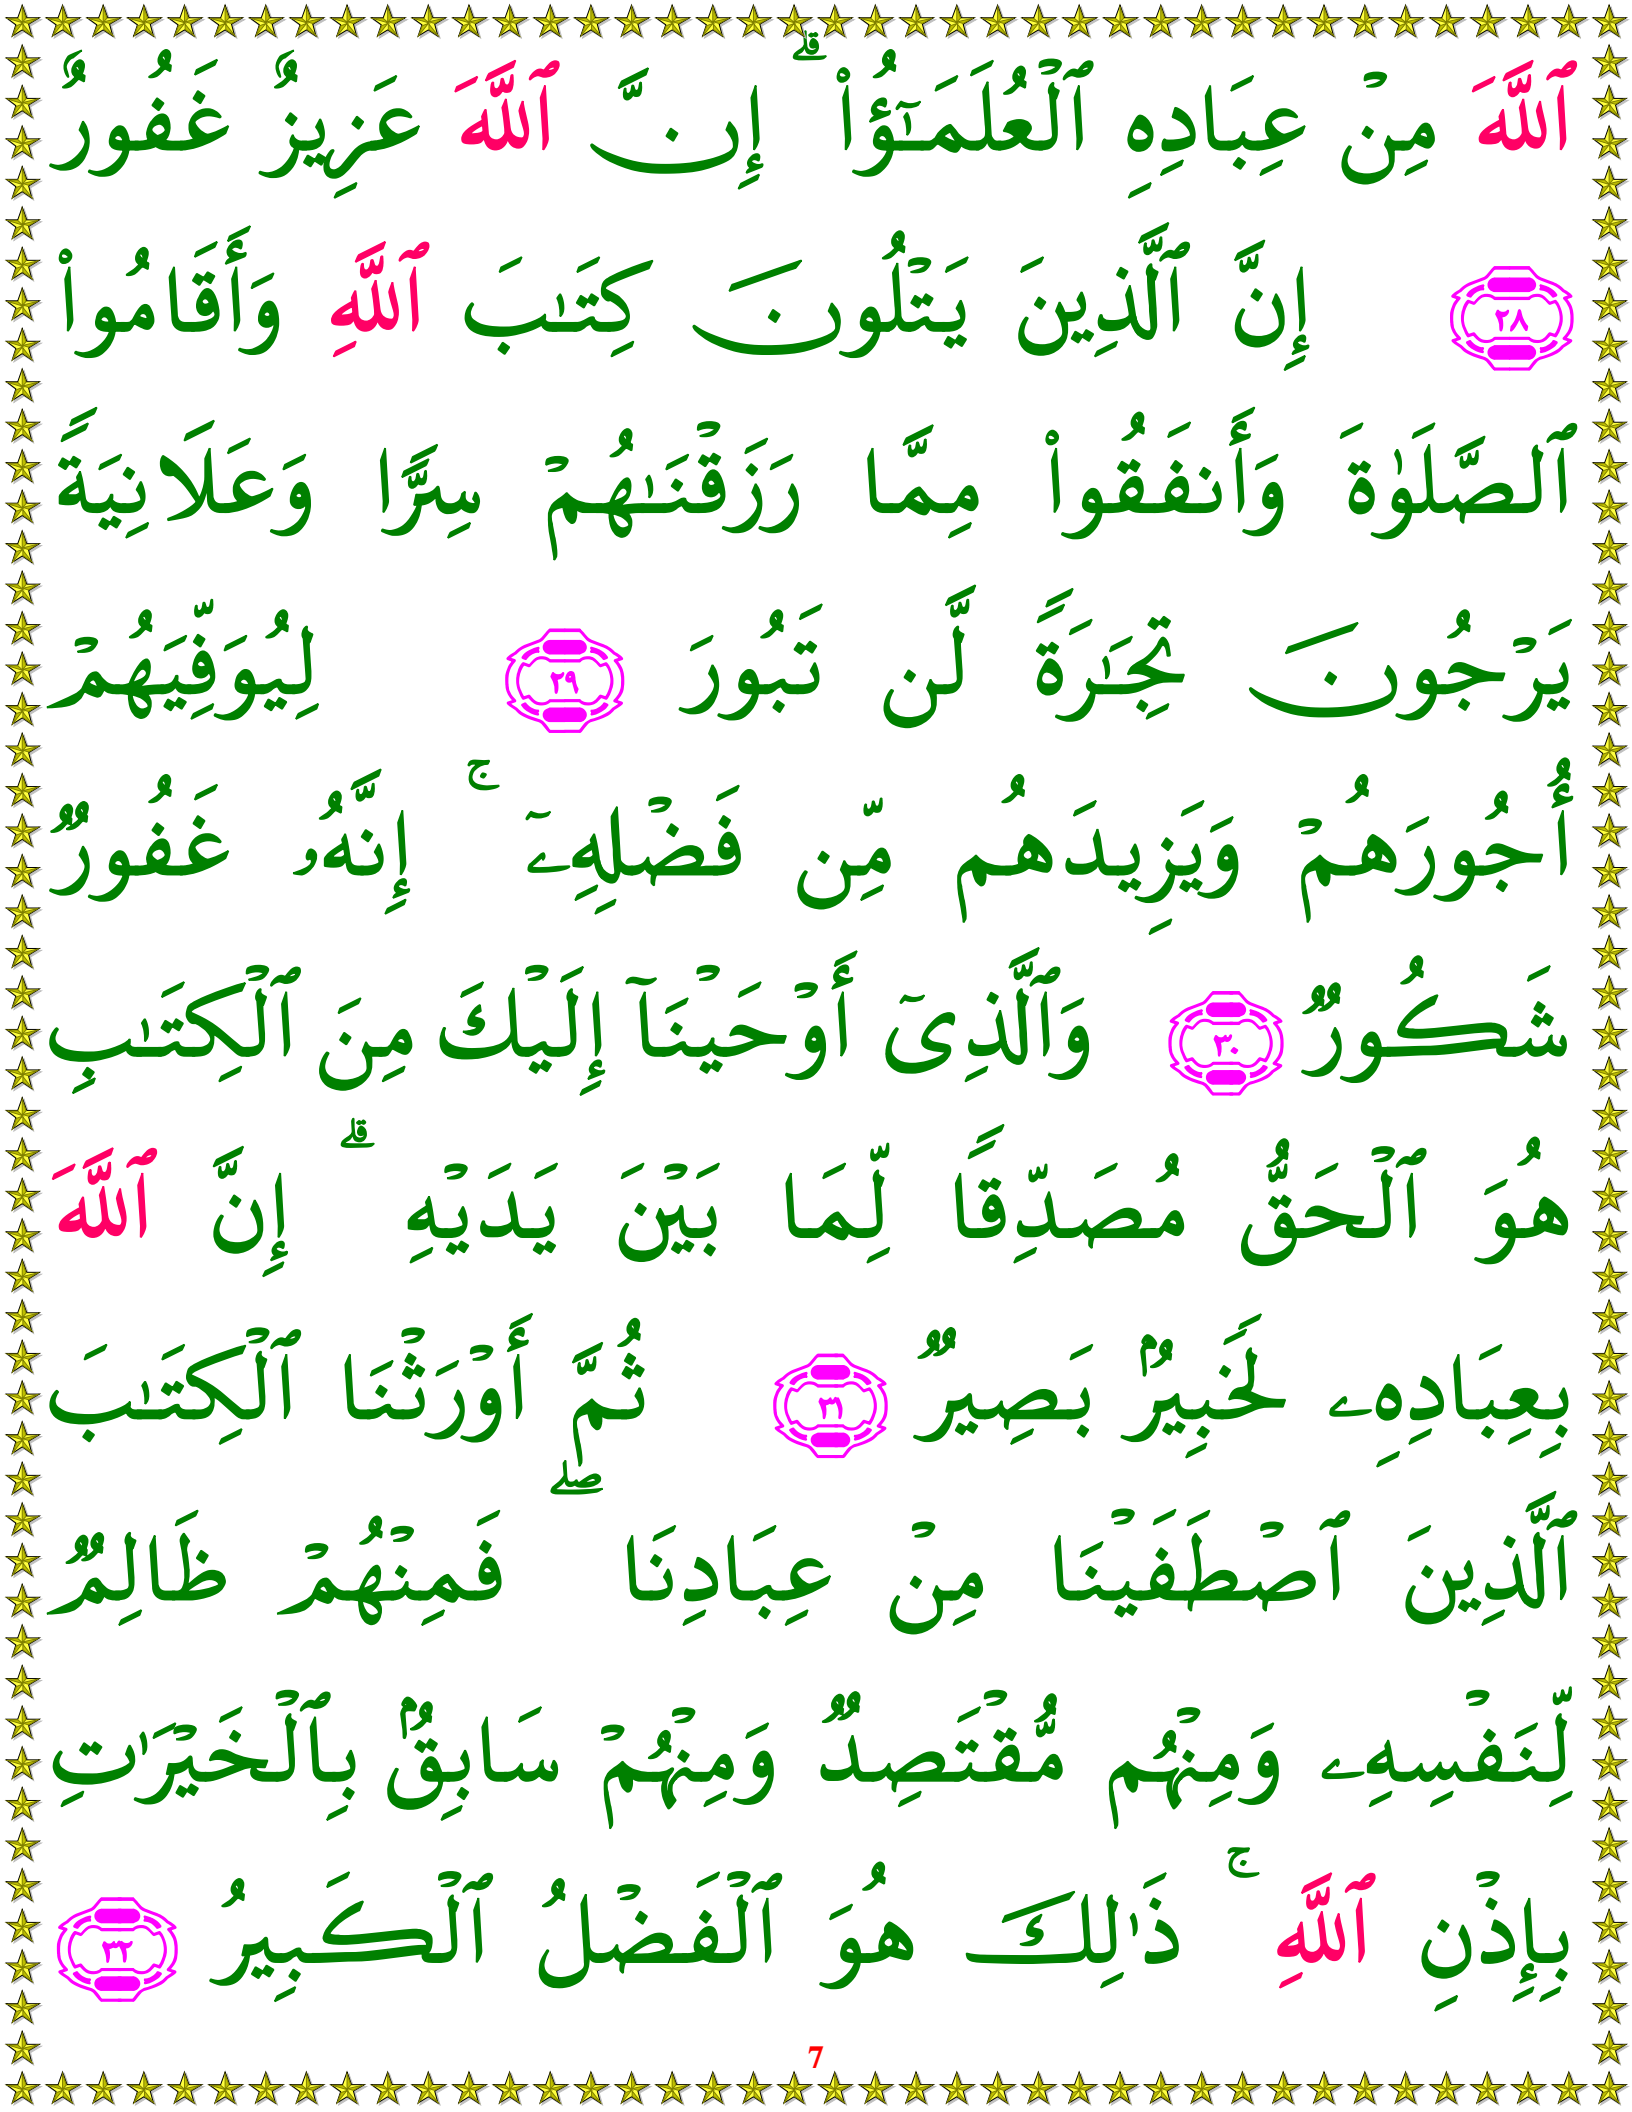 ٱللَّهَ مِنْ عِبَادِهِ ٱلْعُلَمَـٰٓؤُا۟ ۗ إِنَّ ٱللَّهَ عَزِيزٌ غَفُورٌ
٢٨ إِنَّ ٱلَّذِينَ يَتْلُونَ كِتَـٰبَ ٱللَّهِ وَأَقَامُوا۟
ٱلصَّلَوٰةَ وَأَنفَقُوا۟ مِمَّا رَزَقْنَـٰهُمْ سِرًّا وَعَلَانِيَةً
يَرْجُونَ تِجَـٰرَةً لَّن تَبُورَ ٢٩ لِيُوَفِّيَهُمْ
أُجُورَهُمْ وَيَزِيدَهُم مِّن فَضْلِهِۦٓ ۚ إِنَّهُۥ غَفُورٌ
شَكُورٌ ٣٠ وَٱلَّذِىٓ أَوْحَيْنَآ إِلَيْكَ مِنَ ٱلْكِتَـٰبِ
هُوَ ٱلْحَقُّ مُصَدِّقًا لِّمَا بَيْنَ يَدَيْهِ ۗ إِنَّ ٱللَّهَ
بِعِبَادِهِۦ لَخَبِيرٌۢ بَصِيرٌ ٣١ ثُمَّ أَوْرَثْنَا ٱلْكِتَـٰبَ
ٱلَّذِينَ ٱصْطَفَيْنَا مِنْ عِبَادِنَا ۖ فَمِنْهُمْ ظَالِمٌ
لِّنَفْسِهِۦ وَمِنْهُم مُّقْتَصِدٌ وَمِنْهُمْ سَابِقٌۢ بِٱلْخَيْرَٰتِ
بِإِذْنِ ٱللَّهِ ۚ ذَٰلِكَ هُوَ ٱلْفَضْلُ ٱلْكَبِيرُ ٣٢
7